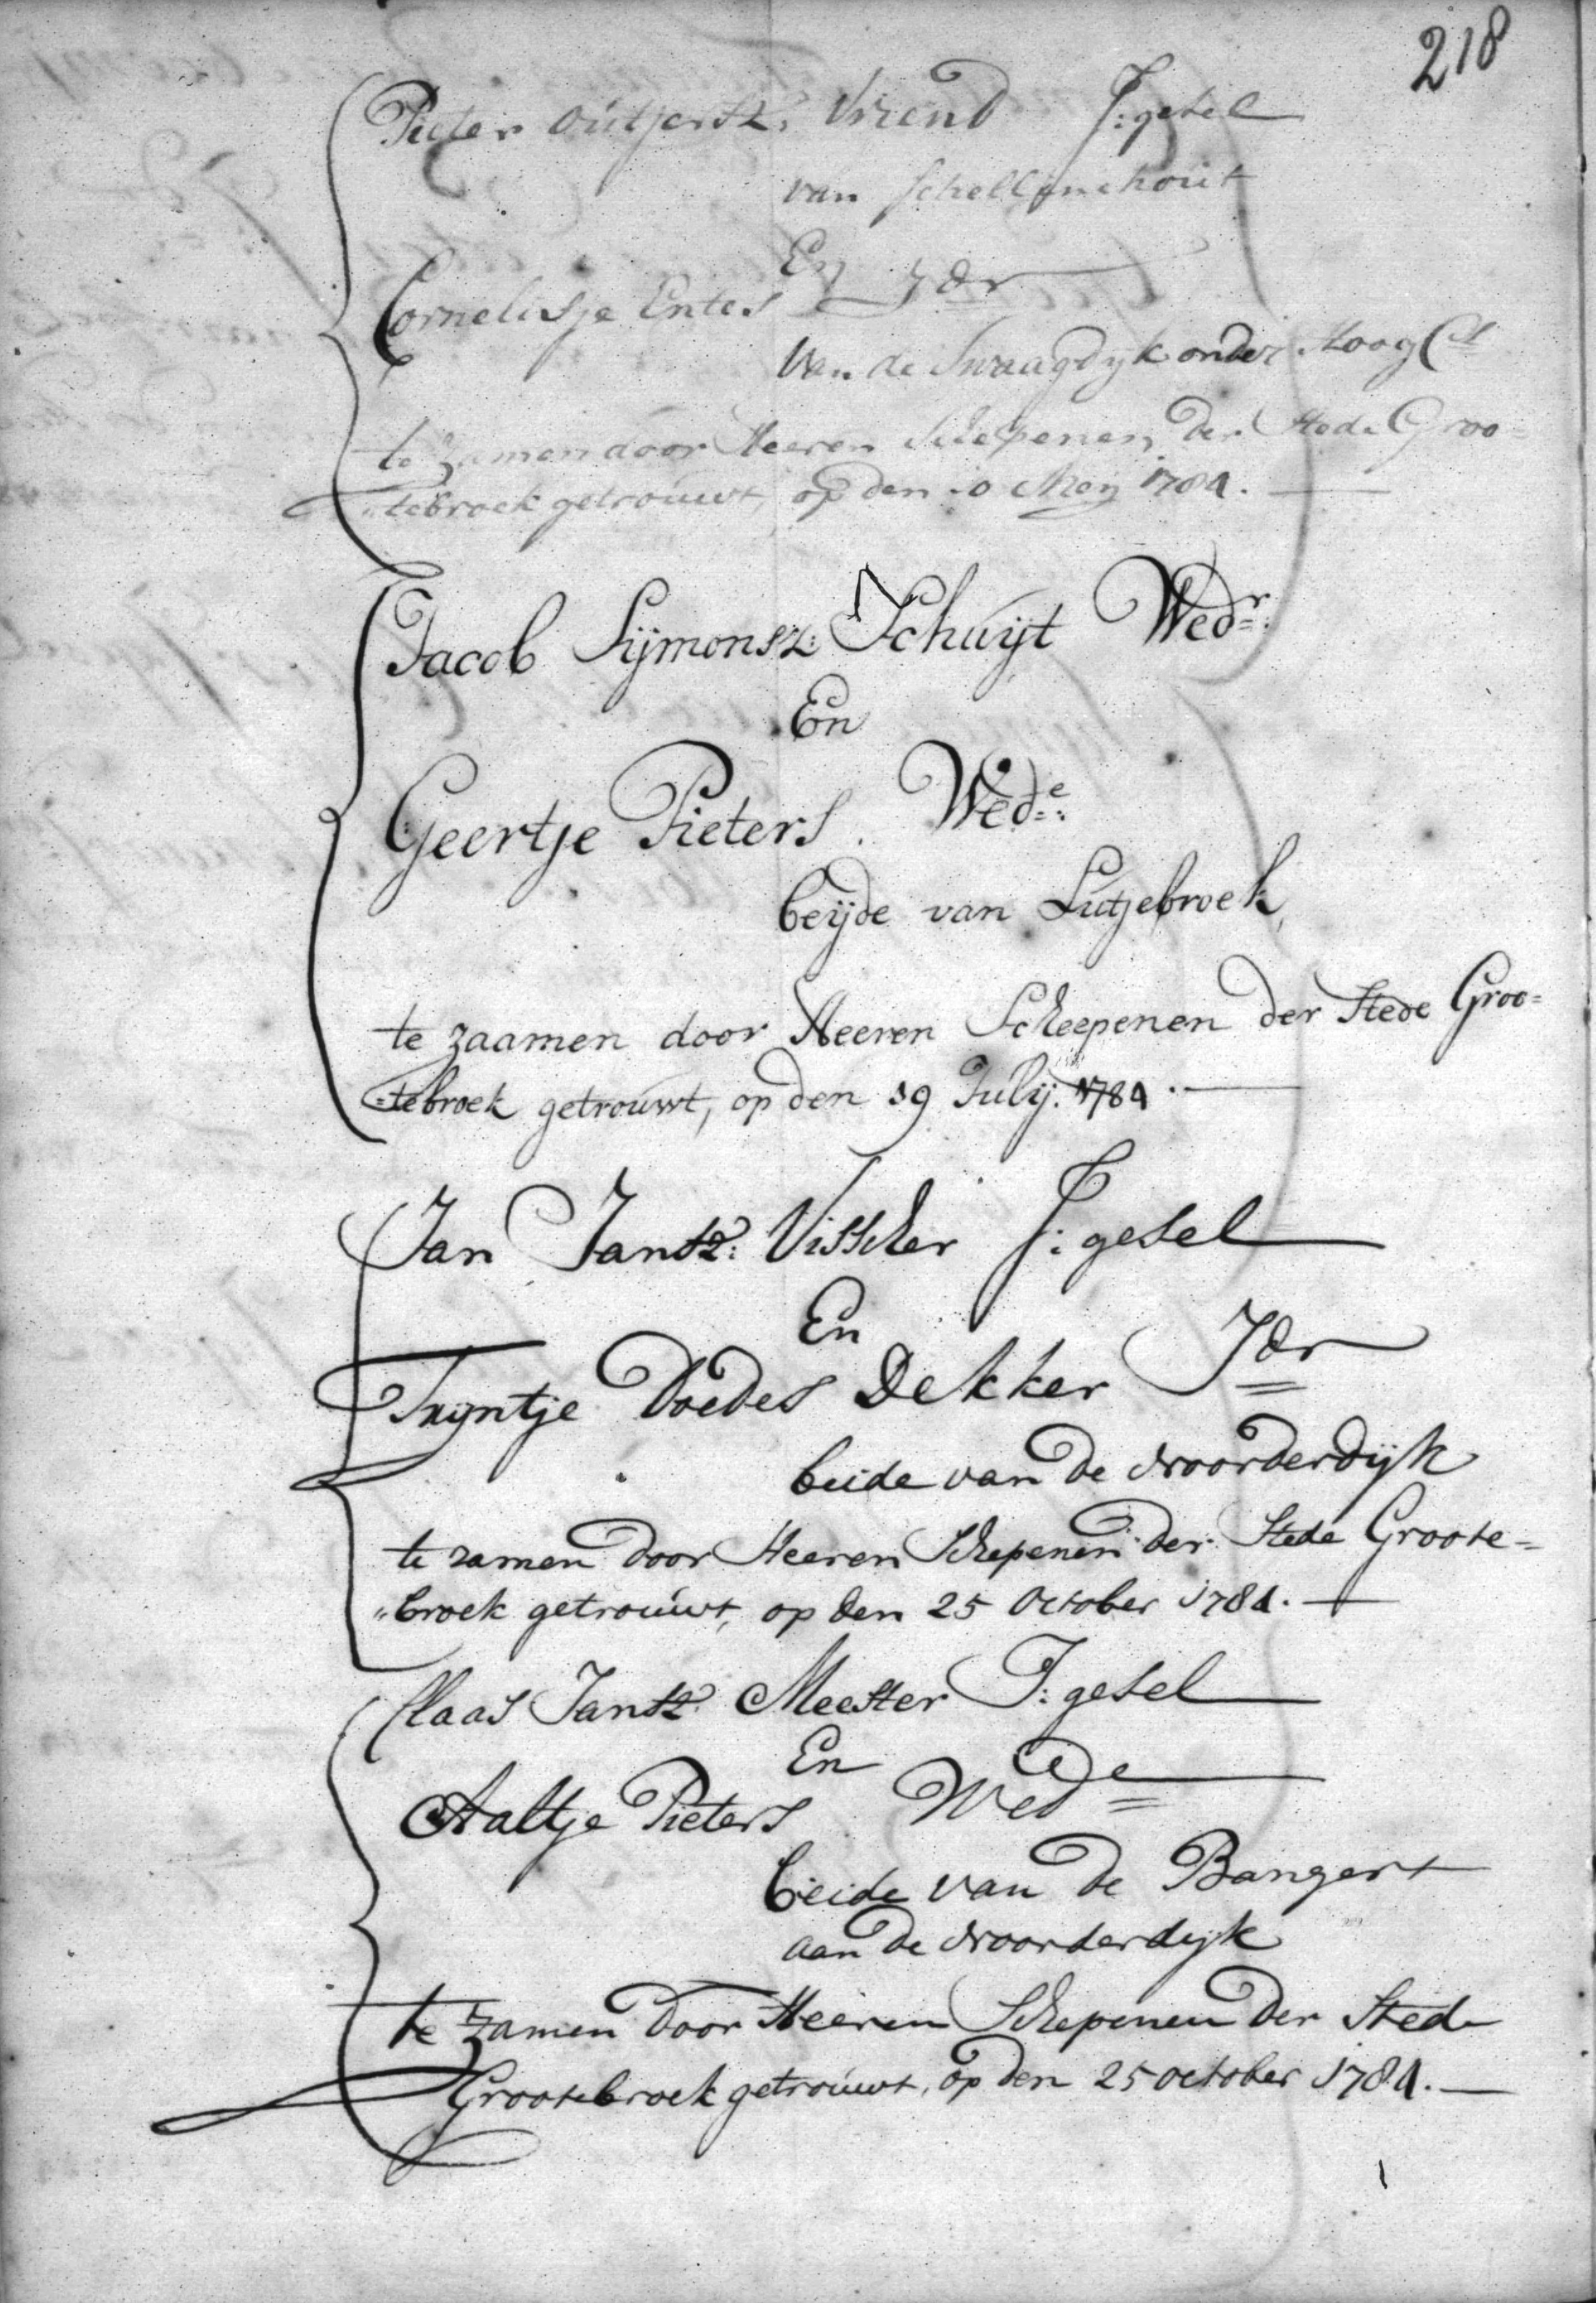 218
Pieter Outjersz: Vriend J:gesel
van Schellinchout
En
Cornelisje Entes Jdr
Van de Swaagdyk onder Hoog Ct
te zamen door Heeren Schepenen der Stede Groo=
"tebroek getrouwt, op den 10 Meij 1784.
Jacob Sijmonsz: Schuijt Wedr:
En
Geertje Pieters. Wede:
beijde van Lutjebroek,
te zaamen door Heeren Scheepenen der Stede Groo=
=tebroek getrouwt, op den 19 Julij. 1784.
Jan Jantz: Visscher J:gesel
En
Trijntje Doedes Dekker Jdr
beide van de Noorderdijk
te zamen door Heeren Schepenen der Stede Groote=
"broek getrouwt, op den 25 October 1784.
Claas Jantz. Meester J:gesel
En
Aaltje Pieters Wede
beide van de Bangert
aan de Noorderdijk
te zamen door Heeren Schepenen der Stede
Grootebroek getrouwt, op den 25 october 1784.